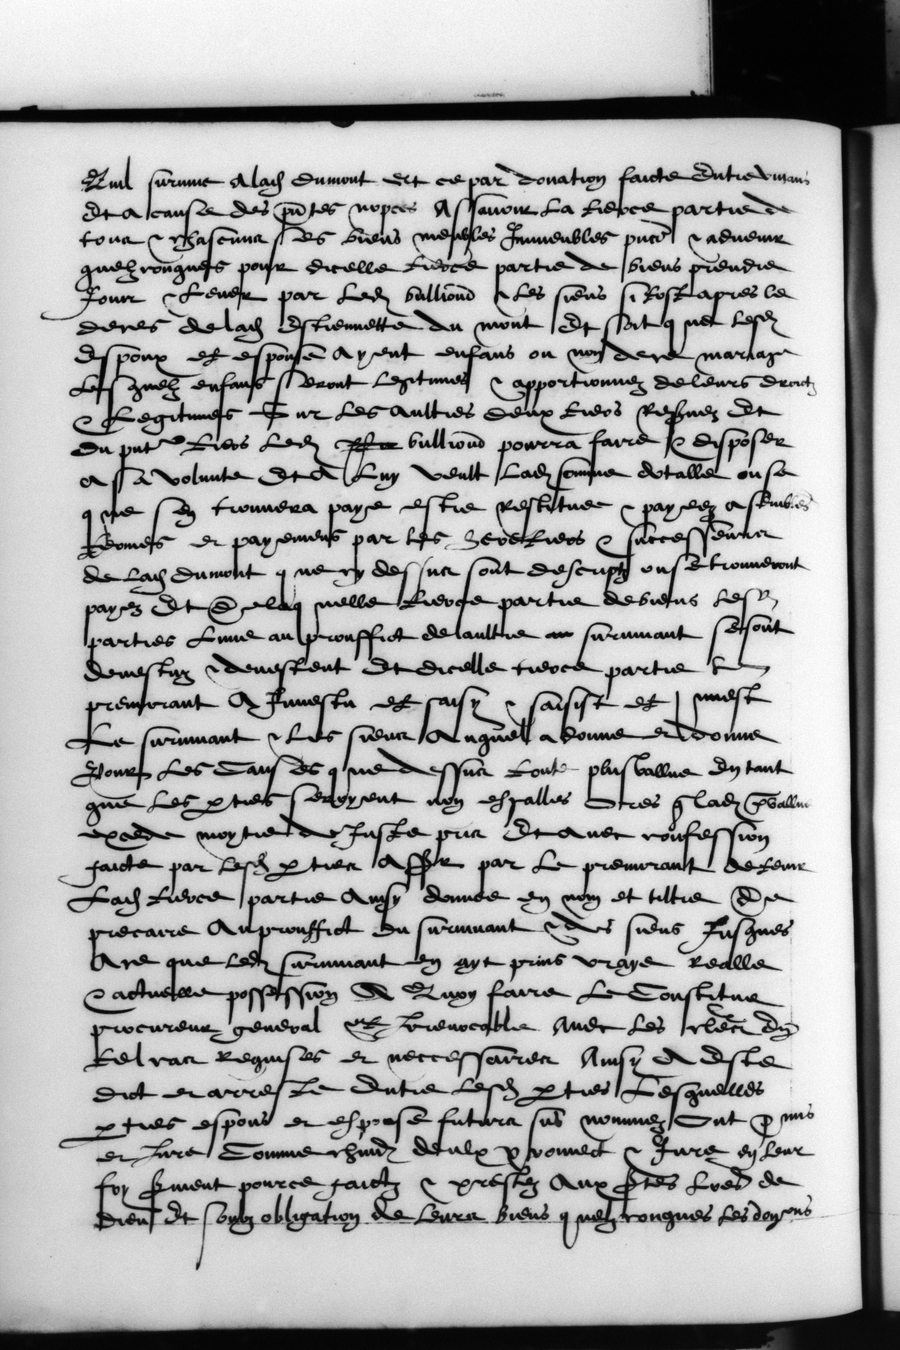 survive a lad dumont et ce par donation faicte entre vivans
Et a cause des pntes nopces Assavoir La tierce partie de
tous & chascuns ses biens meubles Immeubles pntz & advenir
quelzconques pour dicelle tierce partie de biens prendre
Jouir & Lever par Led bulliond & les siens si tost apres le
deces de lad Estiennette du mont Et soit que lesd
Espoux et espouse ayent enfans ou non de ce mariage
Lesquelz enfans seront Legitimes & apportionnez de leurs droictz
& Legitimes Sur les aultres deux tiers Et
du pnt tiers Led bulliond pourra faire & disposer
a sa volunte Et Luy veult Lad somme dotalle ou ce
que sen trouvera paye estre restituee & payee a semblables
termes et payemens par les heretiers & successeurs
de Lad dumont que cy dessus sont descriptz ou se trouveront
payez Et de laquelle tierce partie de biens Lesd
parties Lune au prouffict de laultre survivant se sont
devestuz & devestent Et dicelle tierce partie Le
premourant a Investu et saisy & saisist et Invest
Le survivant & les siens Auquel a donne et donne
Pour Les Causes que dessus toute plusvallue Entant
que Les pties seroyent non esgalles Ores q Lad pvallue
excede moytie de Juste pris Et avec confession
faicte par Lesd pties par Le premourant de tenir
Lad tierce partie Ainsy donnee en nom et tiltre de
precaire Au prouffict du survivant & des siens Jusques
A ce que Led survivant en ayt prins vraye Realle
& actuelle possession A Quoy faire Le Constitue
procureur general et Irrevocable Avec Les
tel cas Requises et neccessaires Ainsy A Este
dict et arreste Entre Lesd pties Lesquelles
pties espoux et espouse futurs sus nommez Ont pmis
et Jure Comme chund deulx promect & Jure en leur
foy serment pource faictz & prestez Aux stes Evres de
Dieu Et soubz obligation de leurs biens quelzconques Lesd